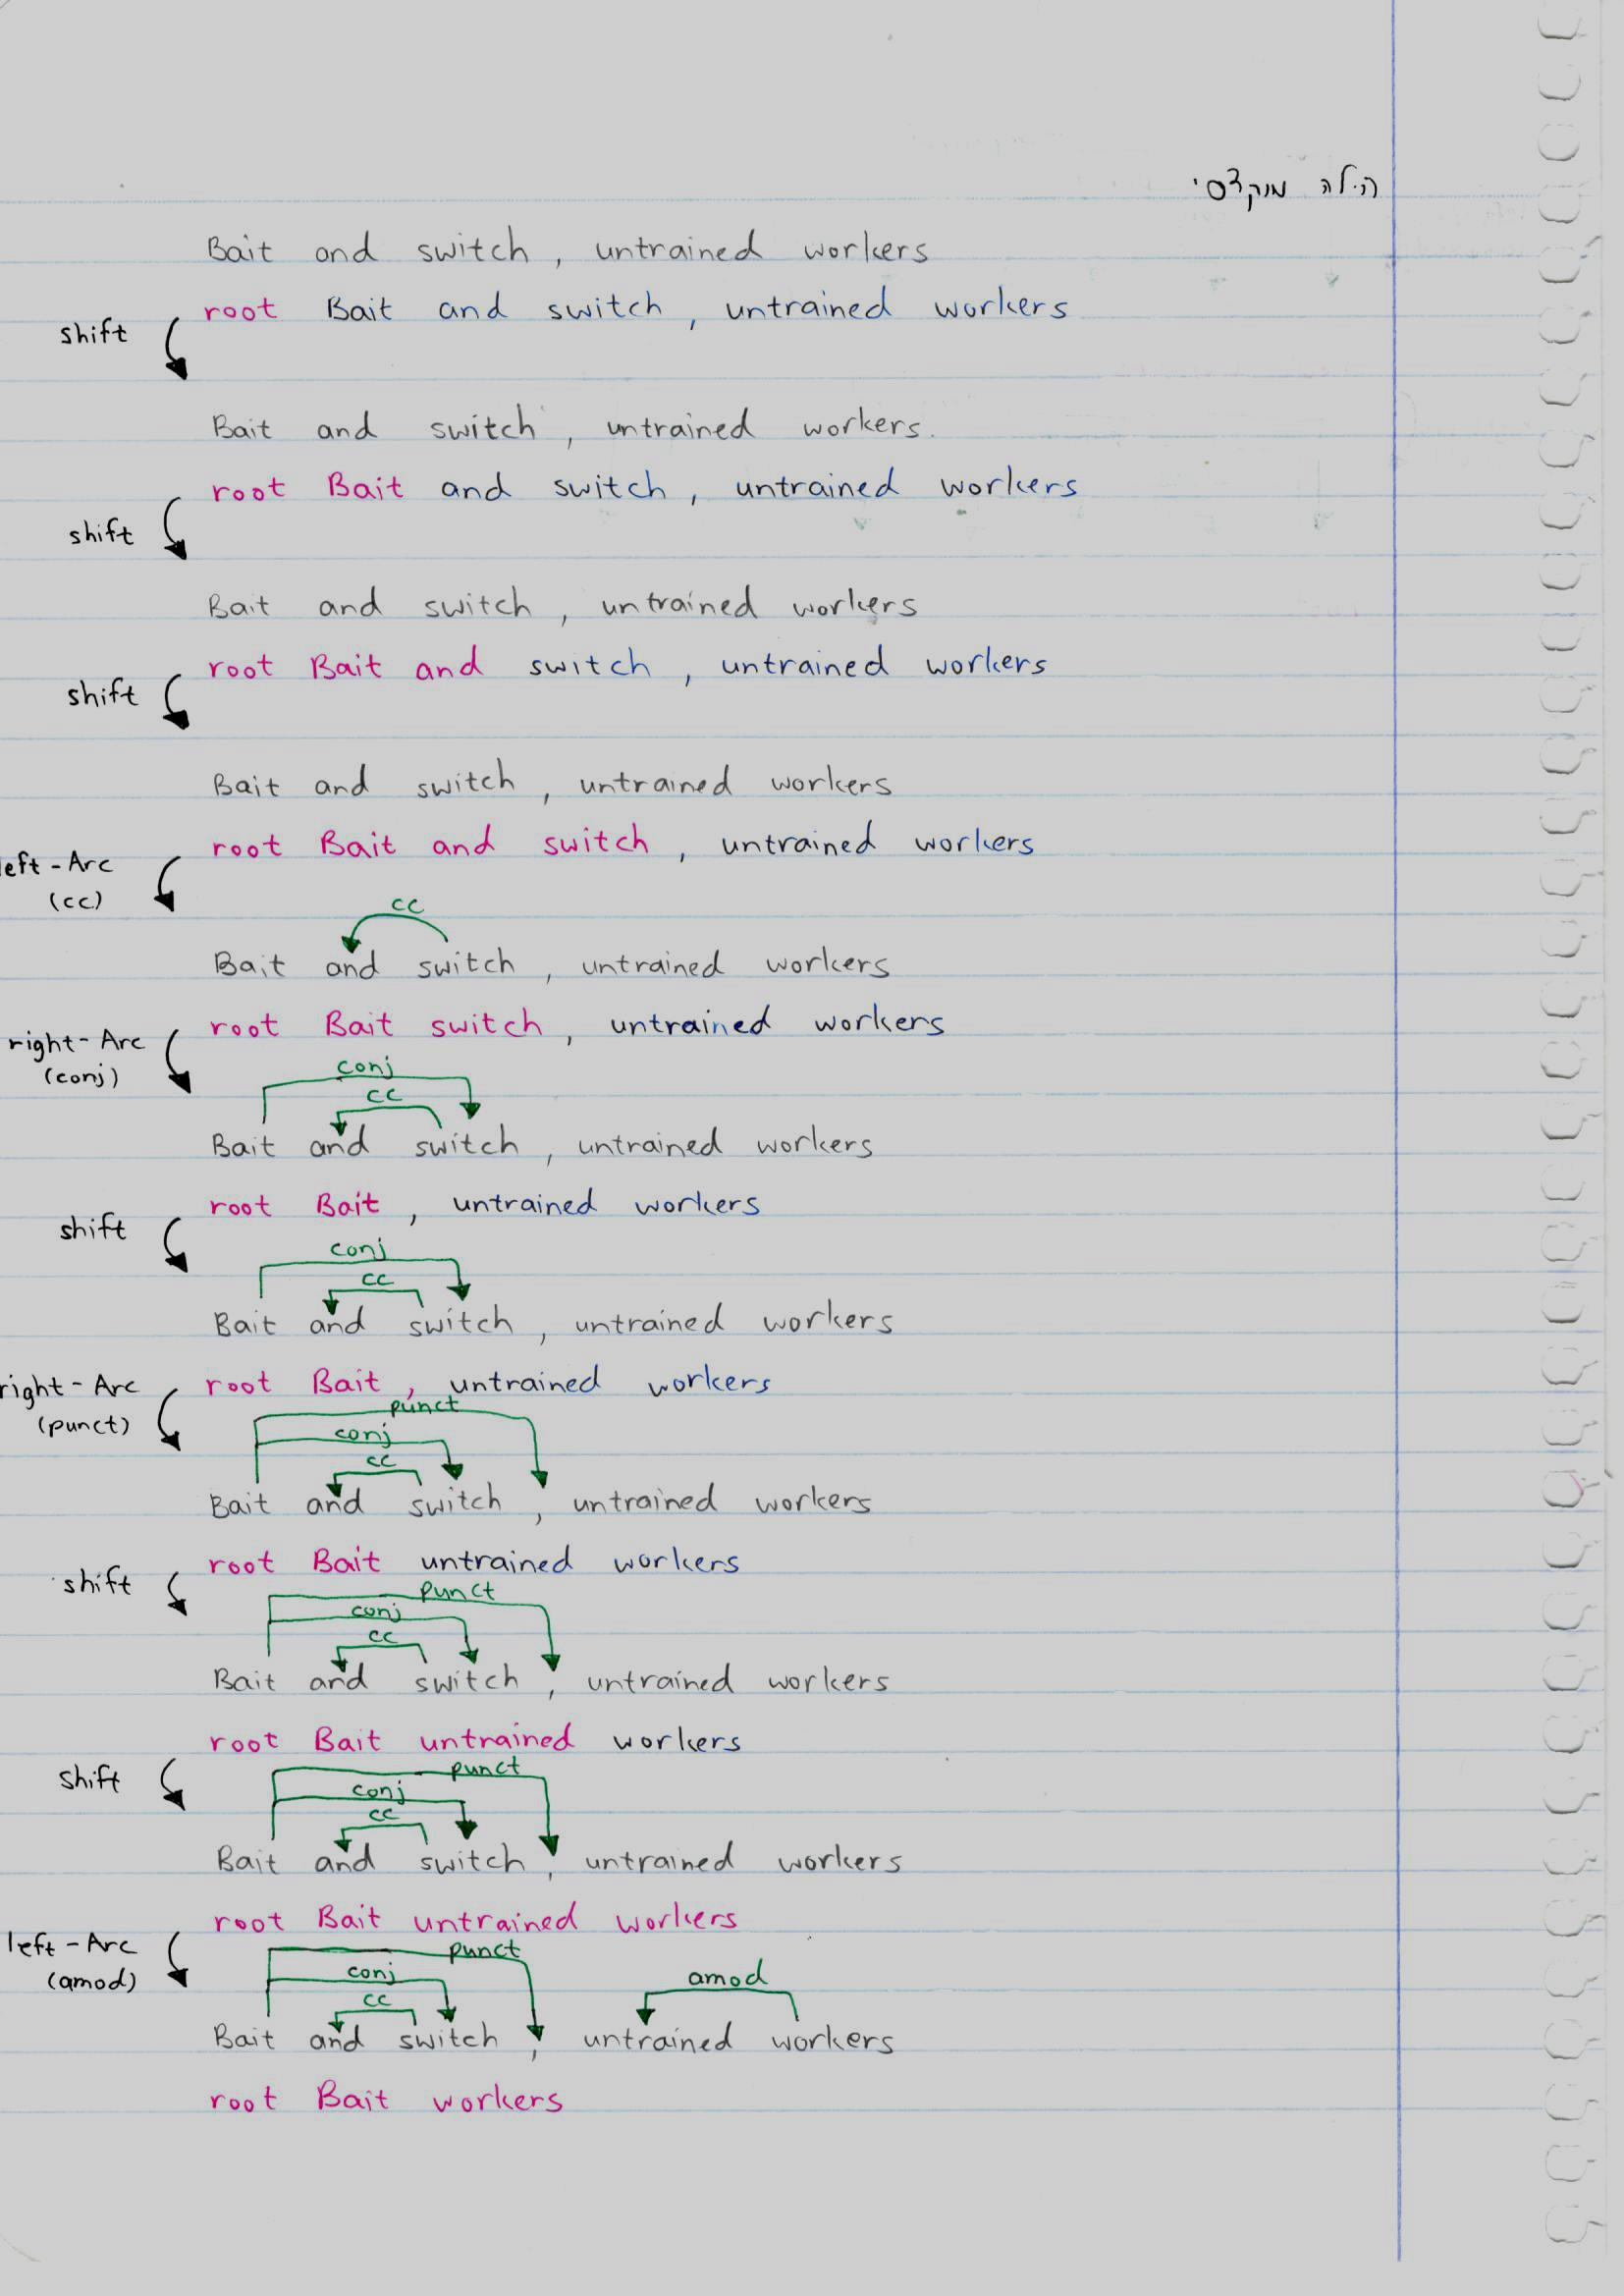 הילה מוקדסי
Bait and switch , untrained workers
root Bait and switch , untrained workers
shift
Bait and switch , untrained workers.
root Bait and switch , untrained workers
shift
Bait and switch , untrained workers
root Bait and switch , untrained workers
shift
Bait and switch , untrained workers
root Bait and switch , untrained workers
left-Arc
(cc)
cc
Bait and switch , untrained workers
root Bait switch , untrained workers
right-Arc
(conj)
conj
cc
Bait and switch , untrained workers
root Bait , untrained workers
shift
conj
cc
Bait and switch , untrained workers
root Bait , untrained workers
right-Arc
(punct)
punct
conj
cc
Bait and switch , untrained workers
root Bait untrained workers
shift
punct
conj
cc
Bait and switch , untrained workers
root Bait untrained workers
shift
punct
conj
cc
Bait and switch , untrained workers
root Bait untrained workers
left-Arc
(amod)
punct
conj
amod
cc
Bait and switch , untrained workers
root Bait workers